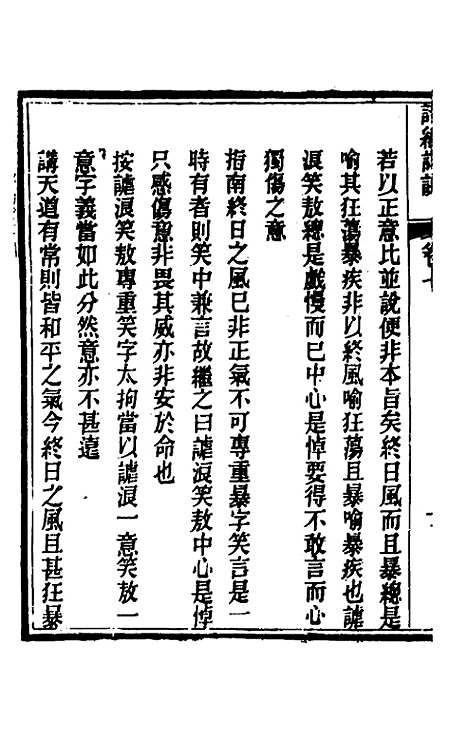 若以正意比並說便非本旨矣終日風而且暴總是
喻其狂蕩暴疾非以終風喻狂蕩且暴喻暴疾也謔
浪笑敖總是戲慢而已中心是悼要得不敢言而心
獨傷之意
指南終日之風已非正氣不可專重暴字笑言是一
時有者則笑中兼言故繼之曰謔浪笑敖中心是悼
只感傷意非畏其威亦非安於命也
按謔浪笑敖專重笑字太拘當以謔浪一意笑敖一
意字義當如此分然意亦不甚遠
講天道有常則皆和平之氣今終日之風且甚狂暴